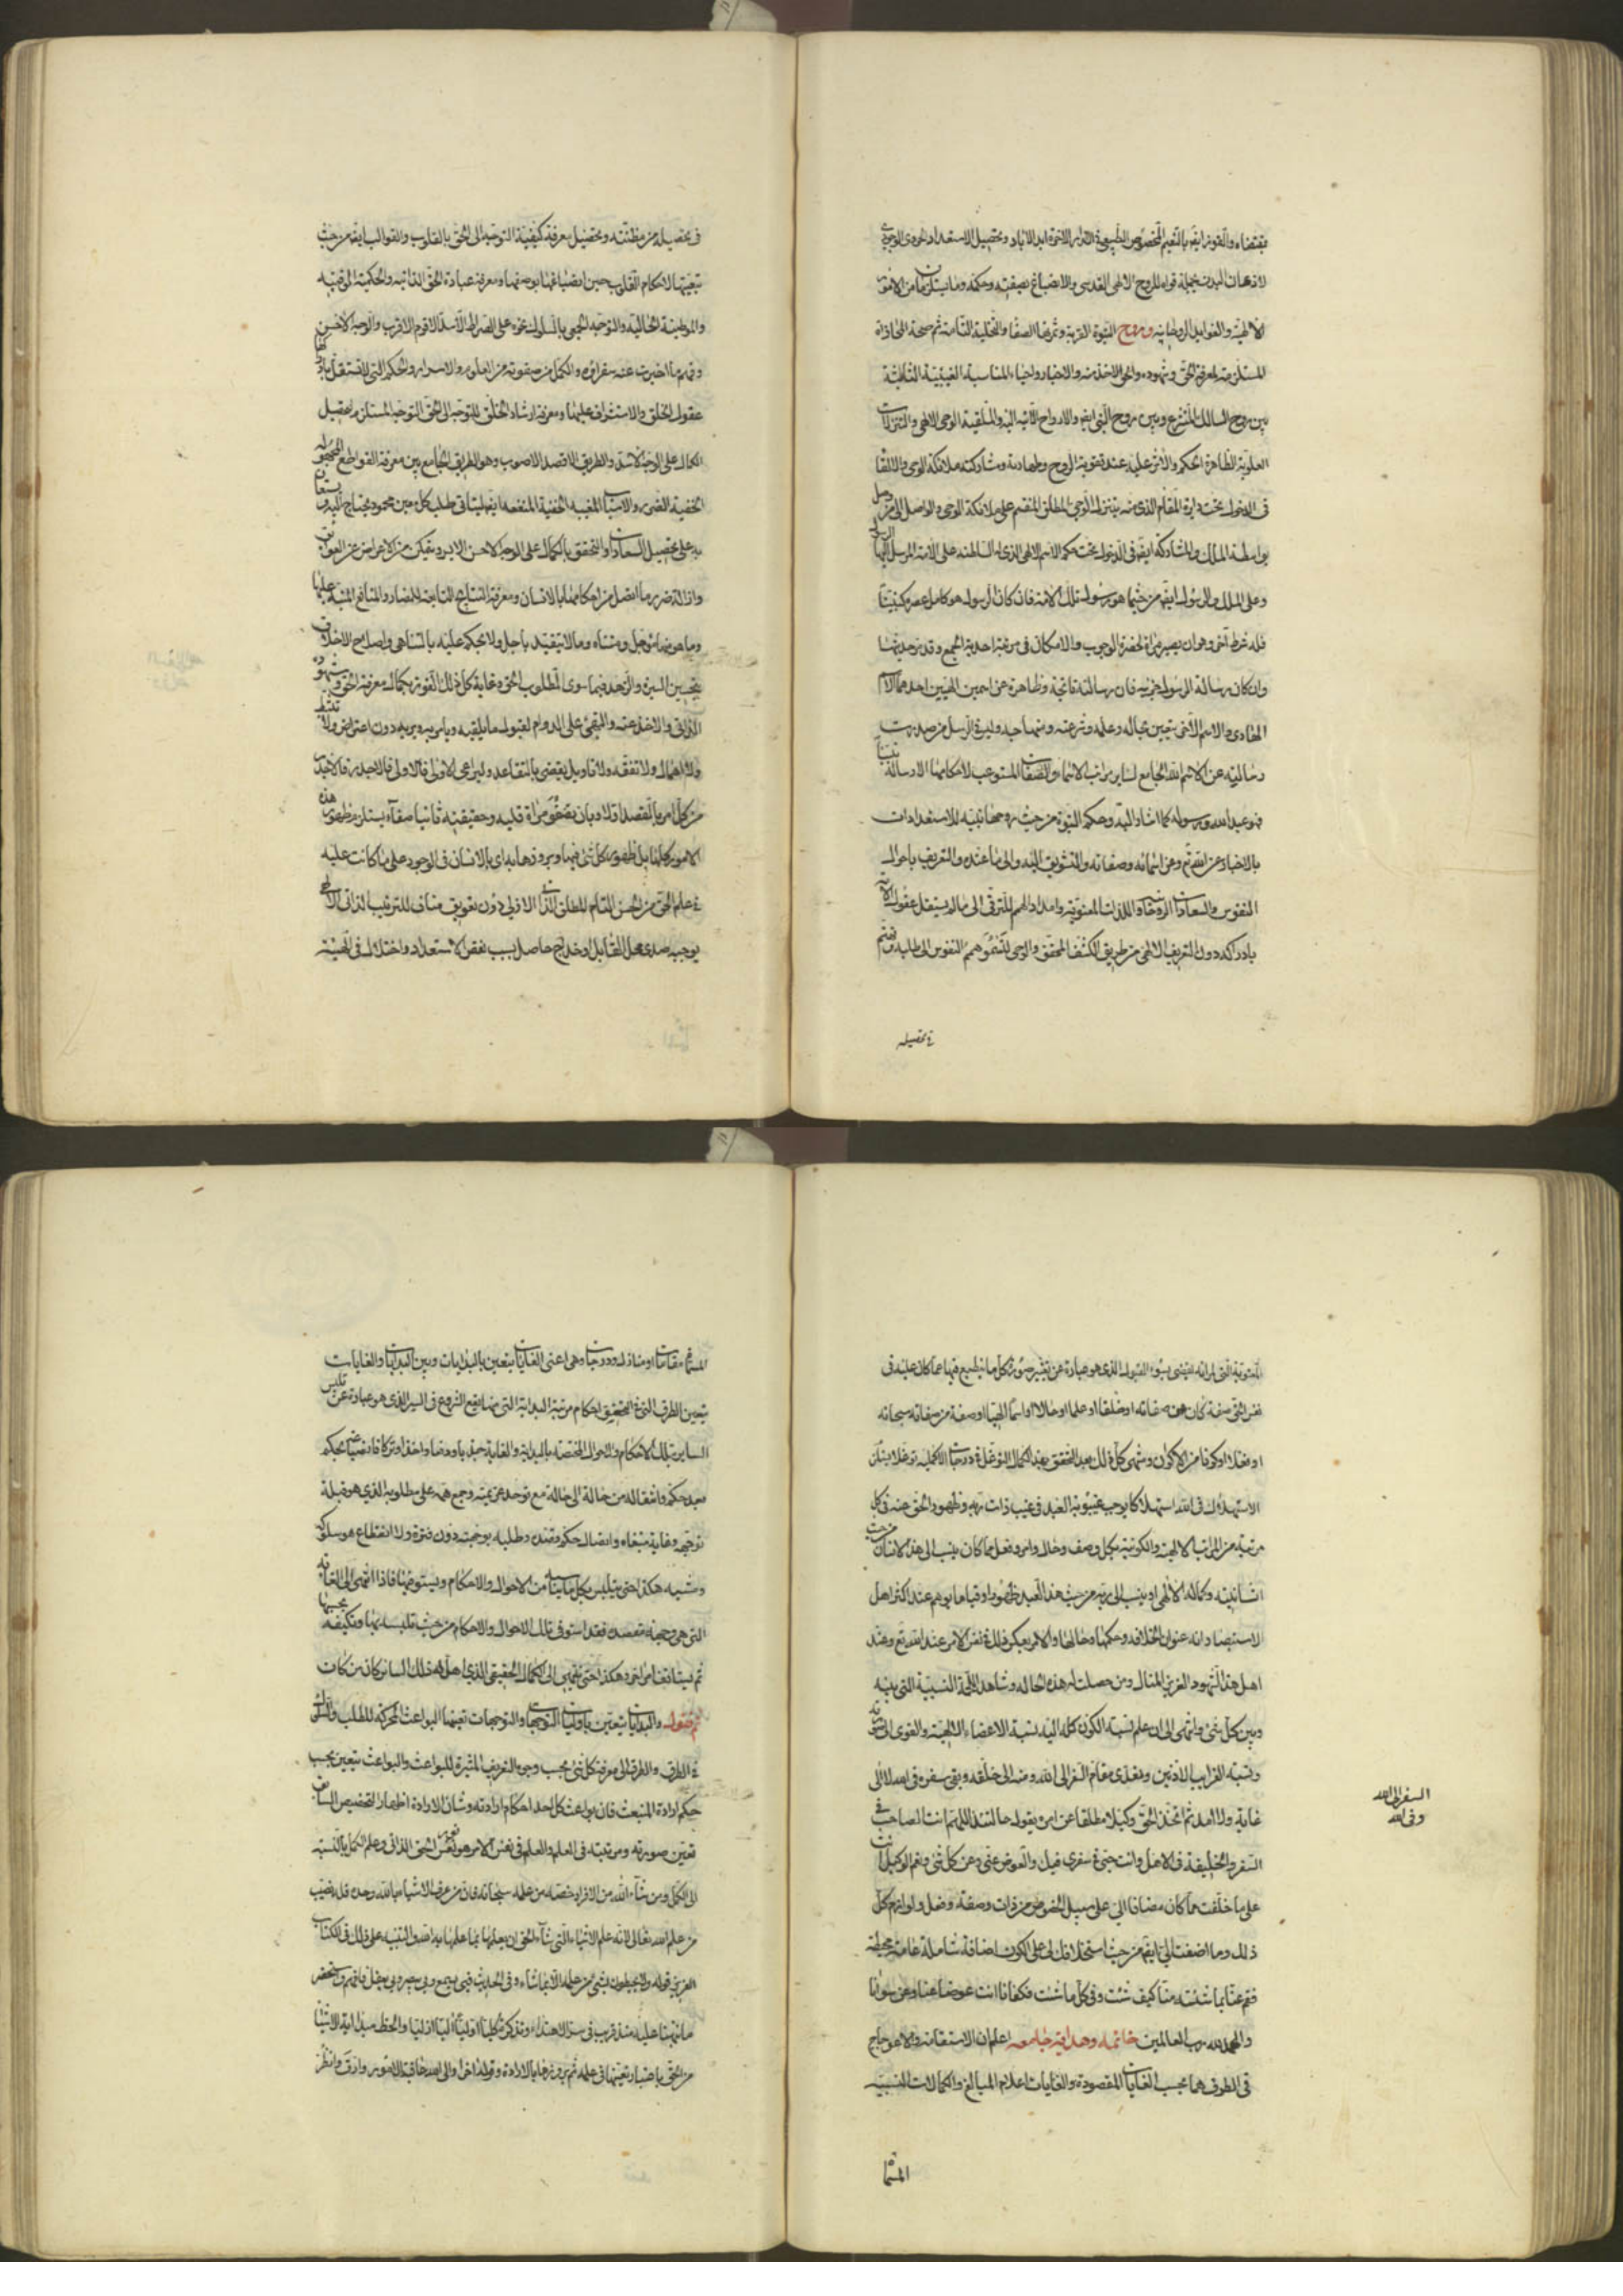 بمقتضاه والفوز ايضا بالنعيم المخصوص الطبيعي في الدار الاخرة ابد الاباد وتحصيل الاستعداد الوجودي
لاذهان البدنية بجملة قواه للروح الالهي القدسي والانصباغ بصفته وحكمه وما يستلزمان من الامور
الالهية والفوايد الروحانية وروح النبوة القربة وثمرتها الصفا والتخلية التامة ثم صحة المحاذاة
المستلزمة لمعرفة الحق وشهوده والاخذ منه والاخبار واحياء المناسبة الغيبية الثابتة
بين روح السالك المتشرع وبين روح النبي ايضا والارواح الآتية اليه والملقية الوحي الالهي والتنزلات
العلوية الظاهرة الحكم والاثر عليه عند تقوية الروح وطهارته ومشاركته ملائكة الوحي والالقا
في الدخول تحت دايرة المقام الذي منه يتنزل الوحي المطلق المنقسم على ملائكة الوحي والواصل الى من وصل
بواسطة الملك والمشاركة ايضا في الدخول تحت حكم الاسم الالهي الذي له السلطنة على الامة المرسل اليها الرسول
وعلى الملك والرسول ايضا من حيثما هو رسول تلك الامة فان كان الرسول هو كامل عصره كنبينا
فله شرط آخر وهو ان يصير مرآة لحضرة الوجوب والامكان في مرتبة احدية الجمع وقد مر حديثها
وان كان رسالة الرسول جزئية فان رسالته ناتجة وظاهرة عن اسمين الهيين احدهما الاسم
الهادي والاسم الاخر يتعين بحاله وعلمه وشرعته ومنهاجه وليس في الرسل من صدرت
رسالته عن الاسم الله الجامع لساير مراتب الاسماء والصفات المستوعب لاحكامها الا رسالة نبينا
فهو عبد الله ورسوله كما اشار اليه وحكم النبوة من حيث روحها تنبيه للاستعدادات
بالاخبار عن الله تع وعن اسمائه وصفاته والتشويق اليه والى ما عنده والتعريف باحوال
النفوس والسعادات الروحانية واللذات المعنوية وامداد الهمم للترقى الى ما لم يستقل عقول الامة
بادراكه دون التعريف الالهي من طريق الكشف المحقق والوحي لتسمو همم النفوس الى طلبه وتهتم
في تحصيله
في تحصيله من مظنته وتحصيل معرفة كيفية التوجه الى الحق بالقلوب والقوالب ايضا من حيث
تبعيتها لاحكام القلوب حين انصباغها بوصفها ومعرفة عبادة الحق الذاتية والحكمية الوقتية
والموطنية الحالية والتوحيد الجمعي بالسلوك نحوه على الصراط الاسد الاقوم الاقرب والوجه الاحسن
وفهم ما اخبرت عنه سفراؤه والكمل من صفوته من العلوم والاسرار والحكم التي لا تستقل بادراكها
عقول الخلق والاستشراف عليها ومعرفة ارشاد الخلق للتوجه الى الحق التوجه المستلزم تحصيل
الكمال على الوجه الاسد والطريق الاقصد الاصوب وهو الطريق الجامع بين معرفة القواطع المجهولة
الخفية الضرر والاسباب المغيبة الخفية المنفعة ايضا ليتأتى طلب كل معين محمود يحتاج اليه ويستعان
به على تحصيل السعادات والتحقق بالكمال على الوجه الاحسن الايسر ويتمكن من الاعراض عن العوايق
وازالة ضرر ما اتصل من احكامها بالانسان ومعرفة النتايج التابعة للمضار والمنافع المنبه عليها
وما هو منها مؤجل ومتناه وما لا يتقيد باجل ولا يحكم عليه بالتناهي واصلاح الاخلاق
بتحسين السيرة والزهد فيما سوى المطلوب الحق وغاية كل ذلك الفوز بكمال معرفة الحق وشهوده
الذاتي والاخذ عنه والتهيؤ على الدوام لقبول ما يلقيه ويأمر به ويريه دون اعتراض ولا تثبط
ولا اهمال ولا تفقه ولا تأويل يقضي بالتقاعد وليراعي الاولى فالاولى والاجدر فالاجدر
من كل امر بالقصد اولا وبان يصحو مرآة قلبه وحقيقته ثانيا صفآء يستلزم ظهور هذه
الامور كلها بل ظهور كل شئ فيها وبروزها به اى بالانسان في الوجود على ما كانت عليه
في علم الحق من الحسن التام المطلق الذاتي الازلي دون تعويق مناف للترتيب الذاتي الالهي
يوجبه صدى محل القابل او خداج حاصل بسبب نقص الاستعداد واختلال في الهيئة
المعنوية التي لمرآته يقضي بسوء القبول الذي هو عبارة عن تغير صورة كل ما ينطبع فيها عما كان عليه في
نفس الحق صفة كان من صفاته او خلقا او علما او حالا او اسما الهيا او صفة من صفاته سبحانه
او فعلا او كونا من الاكوان ومنتهى كل ذلك بعد التحقق بهذا الكمال التوغل في درجات الاكملية توغلا يستلزم
الاستهلاك في الله استهلاكا يوجب غيبوبة العبد في غيب ذات ربه وظهور الحق عنه في كل
مرتبة من المراتب الالهية والكونية بكل وصف وحال وامر وفعل مما كان ينسب الى هذا الانسان من حيث
انسانيته وكماله الالهي او ينسب الى ربه من حيث هذا العبد ظهورا وقياما يوهم عند اكثر اهل
الاستبصار انه عنوان الخلافة وحكمها وحالها والامر بعكس ذلك في نفس الامر عند الله تع وعند
اهل هذا الشهود العزيز المنال ومن حصلت له هذه الحالة وشاهد اللحمة النسبية التي بينه
وبين كل شئ وانتهى الى ان علم نسبة الكون كله اليه نسبة الاعضاء الالهية والقوى الى صورته
ونسبة القرايب الادنين وتعدى مقام السفر الى الله ومنه الى خلقه وبقى سفره في الله لا الى
غاية ولا امد ثم اتخذ الحق وكيلا مطلقا عن امره يقول حالتئذ اللهم انت الصاحب في
السفر والخليفة في الاهل وانت حسبي في سفري فيك والعوض عني وعن كل شئ ونعم الوكيل انت
على ما خلفت مما كان مضافا الي على سبيل الخصوص من ذات وصفة وفعل ولوازم كل
ذلك وما اضفت الي ايضا من حيث استخلافك لي على الكون اضافة شاملة عامة محيطة
فقم عنا بما شئت منا كيف شئت وفي كل ما شئت فكفانا انت عوضا عنا وعن سوانا
والحمد لله رب العالمين خاتمة وهداية جامعة اعلم ان الاستقامة والاعوجاج
في الطرق هما بحسب الغايات المقصودة والغايات اعلام المبالغ والكمالات النسبية
السفر الى الله
وفي الله
المسماة
المسماة مقامات او منازل ودرجات وهي اعني الغايات يتعين بالبدايات وبين البدايات والغايات
يتعين الطرق التي هي في التحقيق احكام مرتبة البداية التي منها يقع الشروع في السير الذي هو عبارة عن تلبس
الساير بتلك الاحكام والاحوال المختصة بالبداية والغاية جذبا ودفعا واخذا وتركا فانصباغه بحكم
بعد حكم وانتقاله من حالة الى حالة مع توحد عزيمته وجمع همه على مطلوبه الذي هو قبلة
توجهه وغاية مبتغاه واتصال حكم قصده وطلبه بوجهته دون فترة ولا انقطاع هو سلوكه
ومشيه هكذا حتى يتلبس بكل ما يناسبه من الاحوال والاحكام ويستوفيها فاذا انتهى الى الغاية
التي هي وجهة مقصده فقد استوفى تلك الاحوال والاحكام من حيث تلبسه بها وتكيفه بحسبها
ثم يستأنف امرا آخر وهكذا حتى ينتهي الى الكمال الحقيقي الذي اهل له ذلك الساير كان من كان
ثم نقول والبدايات يتعين باوليات التوجهات والتوجهات تعينها البواعث المحركة للطلب والسلوك
في الطرق والطرق الى معرفة كل شئ بحسب وجوه التعريف المثيرة للبواعث والبواعث يتعين بحسب
حكم ارادة المنبعث فان بواعث كل احد احكام ارادته وشان الارادة اظهار التخصيص السابق
تعين صورته ومرتبته في العلم والعلم في نفس الامر هو نور الحق الذاتي وعلم الكمل بالنسبة
الى الكمل ومن شاء الله من الافراد حصة من علمه سبحانه فان من عرف الاشياء بالله وحده فله نصيب
من علم الله تعالى لانه علم الاشياء التي شآء الحق ان يعلمها بما علمها به الله والتنبيه على ذلك في الكتاب
العزيز قوله ولا يحيطون بشئ من علمه الا بما شاء وفي الحديث فبي يسمع وبي يبصر وبي يعقل فافهم واستحضر
ما نبهنا عليه منذ قريب في سؤال هذا وتذكر كليا اوليا الهيا ازليا والحظ مبدئية الاشيا
من الحق باعتبار تعينها في علمه ثم بروزها بالارادة وقوله اخرا والى الله عاقبة الامور وارق وانظر